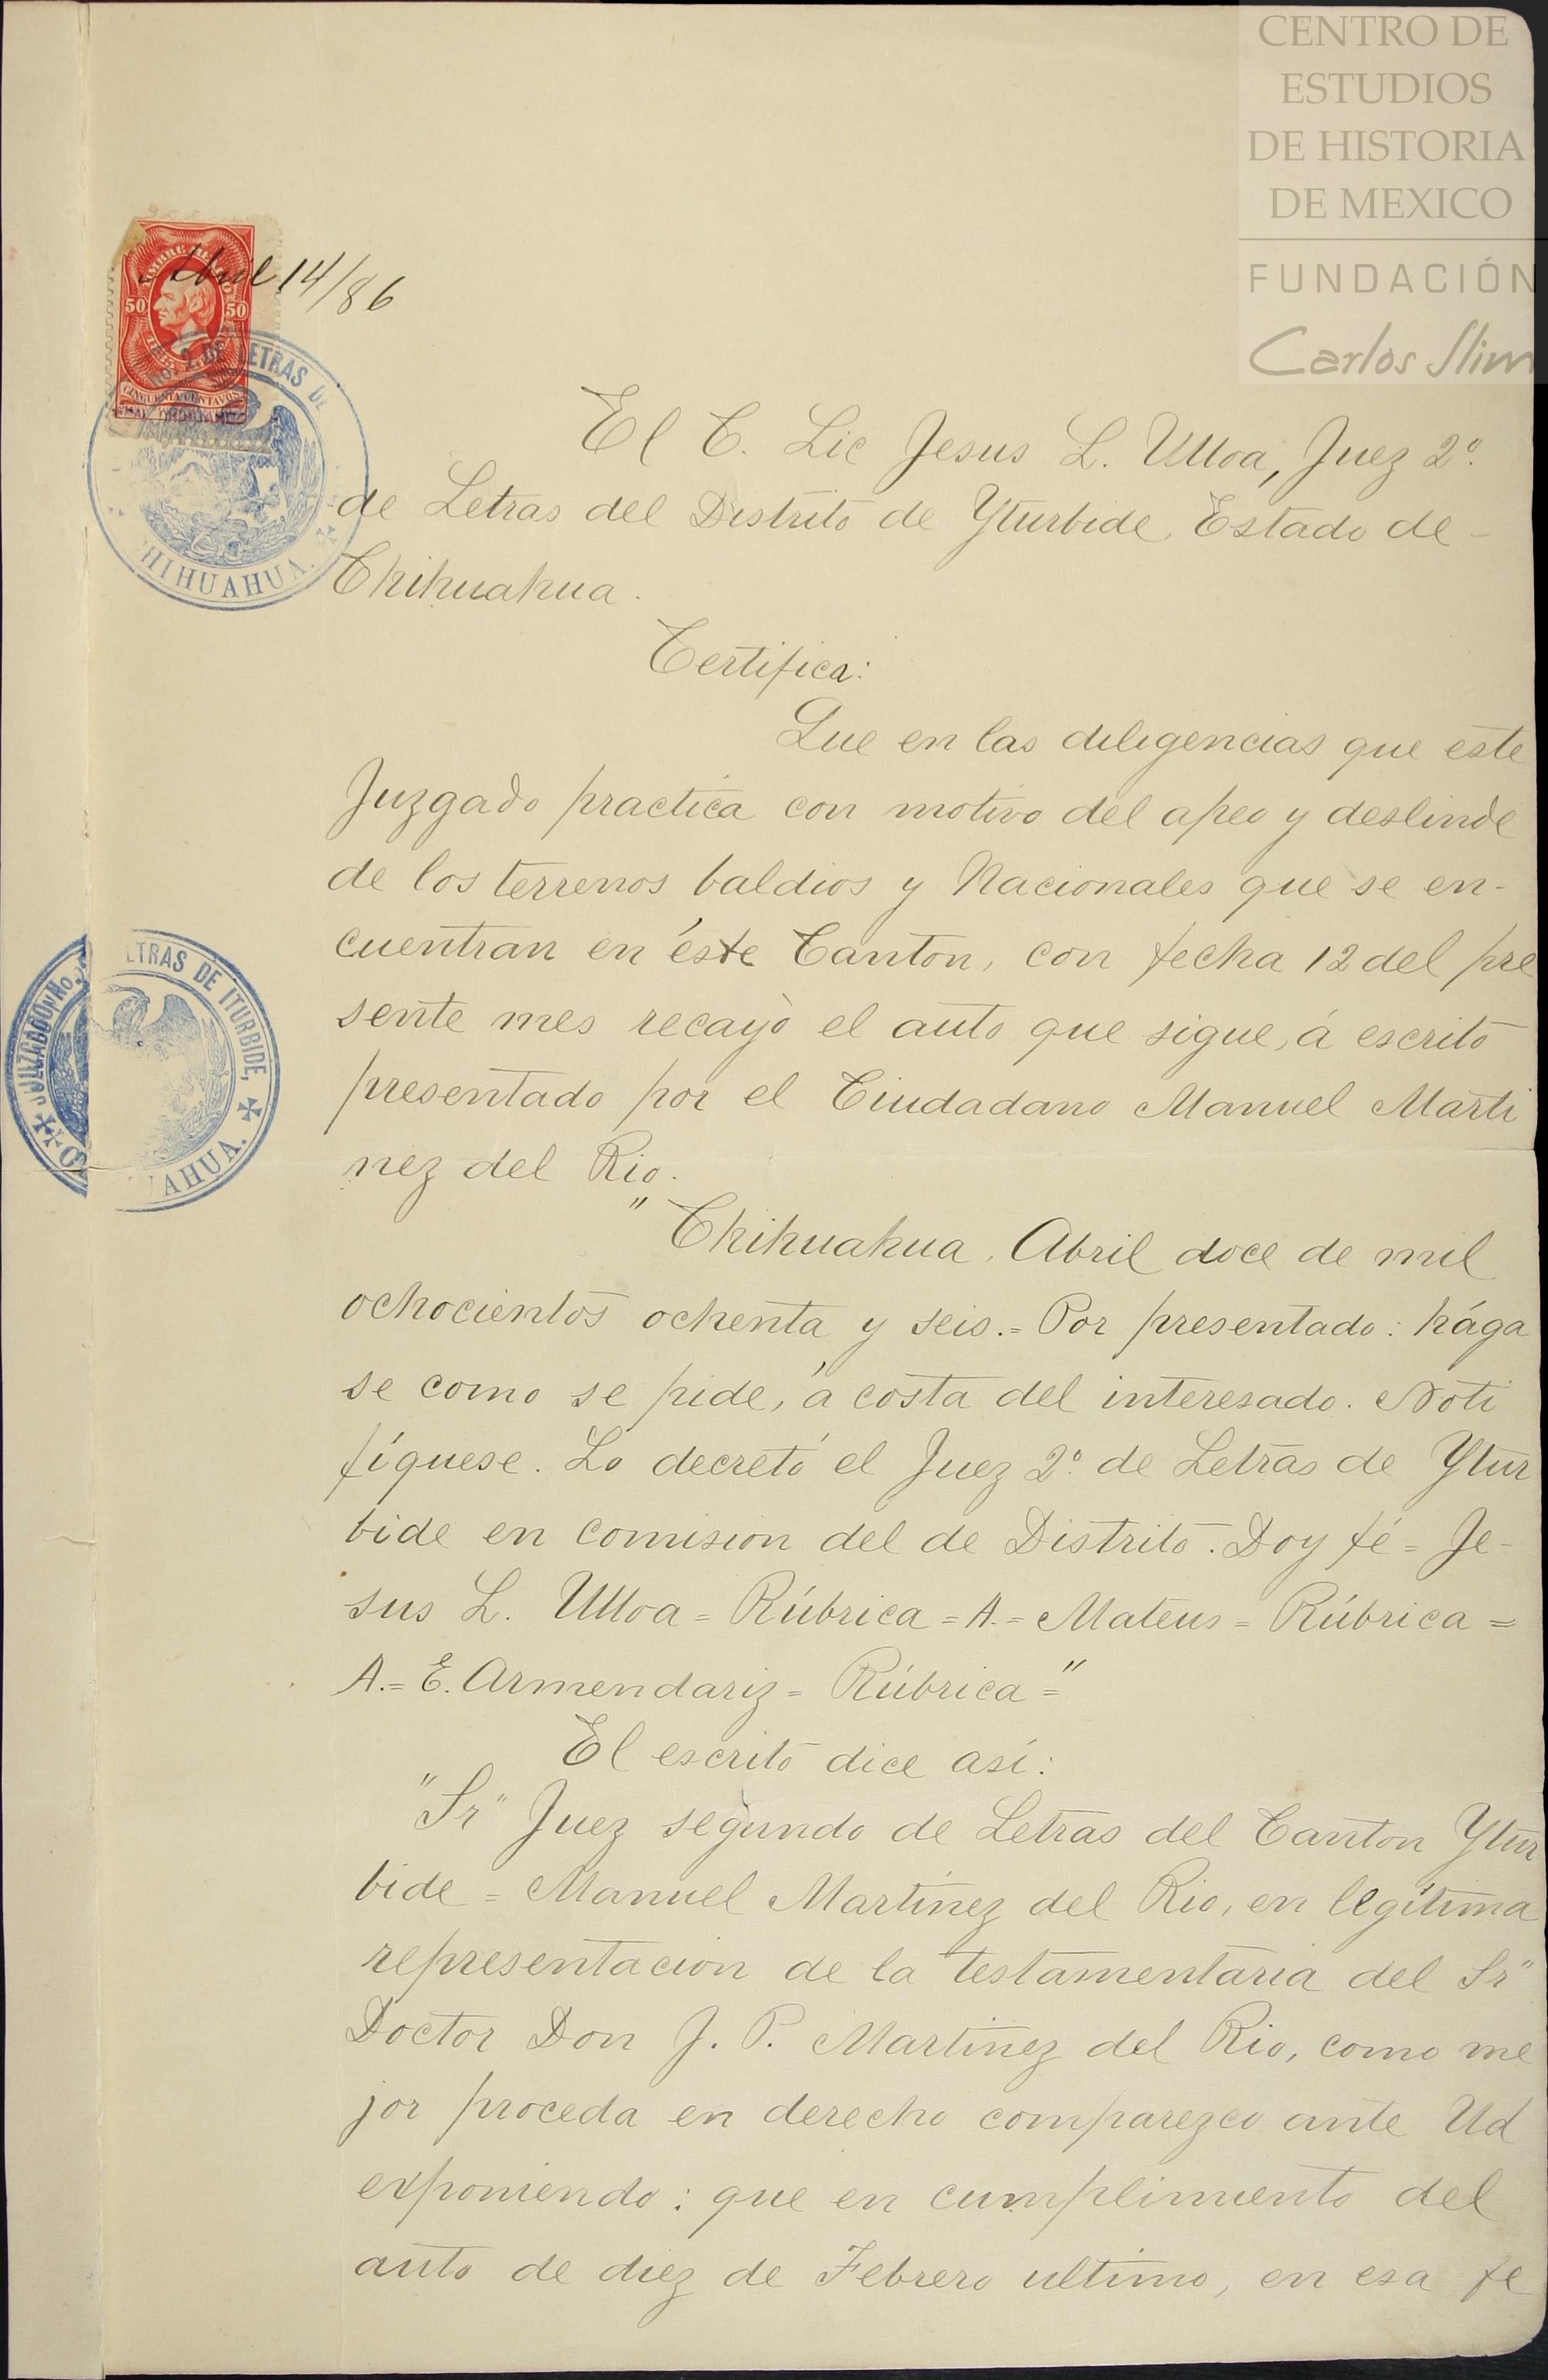 CENTRO DE
ESTUDIOS
DE HISTORIA
DE MEXICO
FUNDACIÓN
Carlos Slim
Abril 14/86
50 50
CINCUENTA CENTAVOS
No. 2 DE LETRAS DE
HIHUAHUA.
El C. Lic Jesus L. Ulloa, Juez 2º.
de Letras del Distrito de Yturbide, Estado de-
Chihuahua.
Certifica:
Que en las diligencias que este
Juzgado practica con motivo del apeo y deslinde
de los terrenos baldios y Nacionales que se en-
cuentran en éste Canton, con fecha 12 del pre
sente mes recayó el auto que sigue, á escrito
presentado por el Ciudadano Manuel Marti
nez del Rio.
JUZGADO No.
LETRAS DE ITURBIDE,
AHUA.
"Chihuahua, Abril doce de mil
ochocientos ochenta y seis.= Por presentado: hága
se como se pide, á costa del interesado. Noti
fíquese. Lo decretó el Juez 2º. de Letras de Ytur
bide en comision del de Distrito. Doy fé = Je-
sus L. Ulloa = Rúbrica = A.= Mateus = Rúbrica =
A.= E. Armendariz = Rúbrica ="
El escrito dice así:
"Sr" Juez segundo de Letras del Canton Ytur
bide = Manuel Martínez del Rio, en legítima
representacion de la testamentaria del Sr"
Doctor Don J. P. Martinez del Rio, como me
jor proceda en derecho comparezco ante Ud
exponiendo: que en cumplimiento del
auto de diez de Febrero ultimo, en esa fe